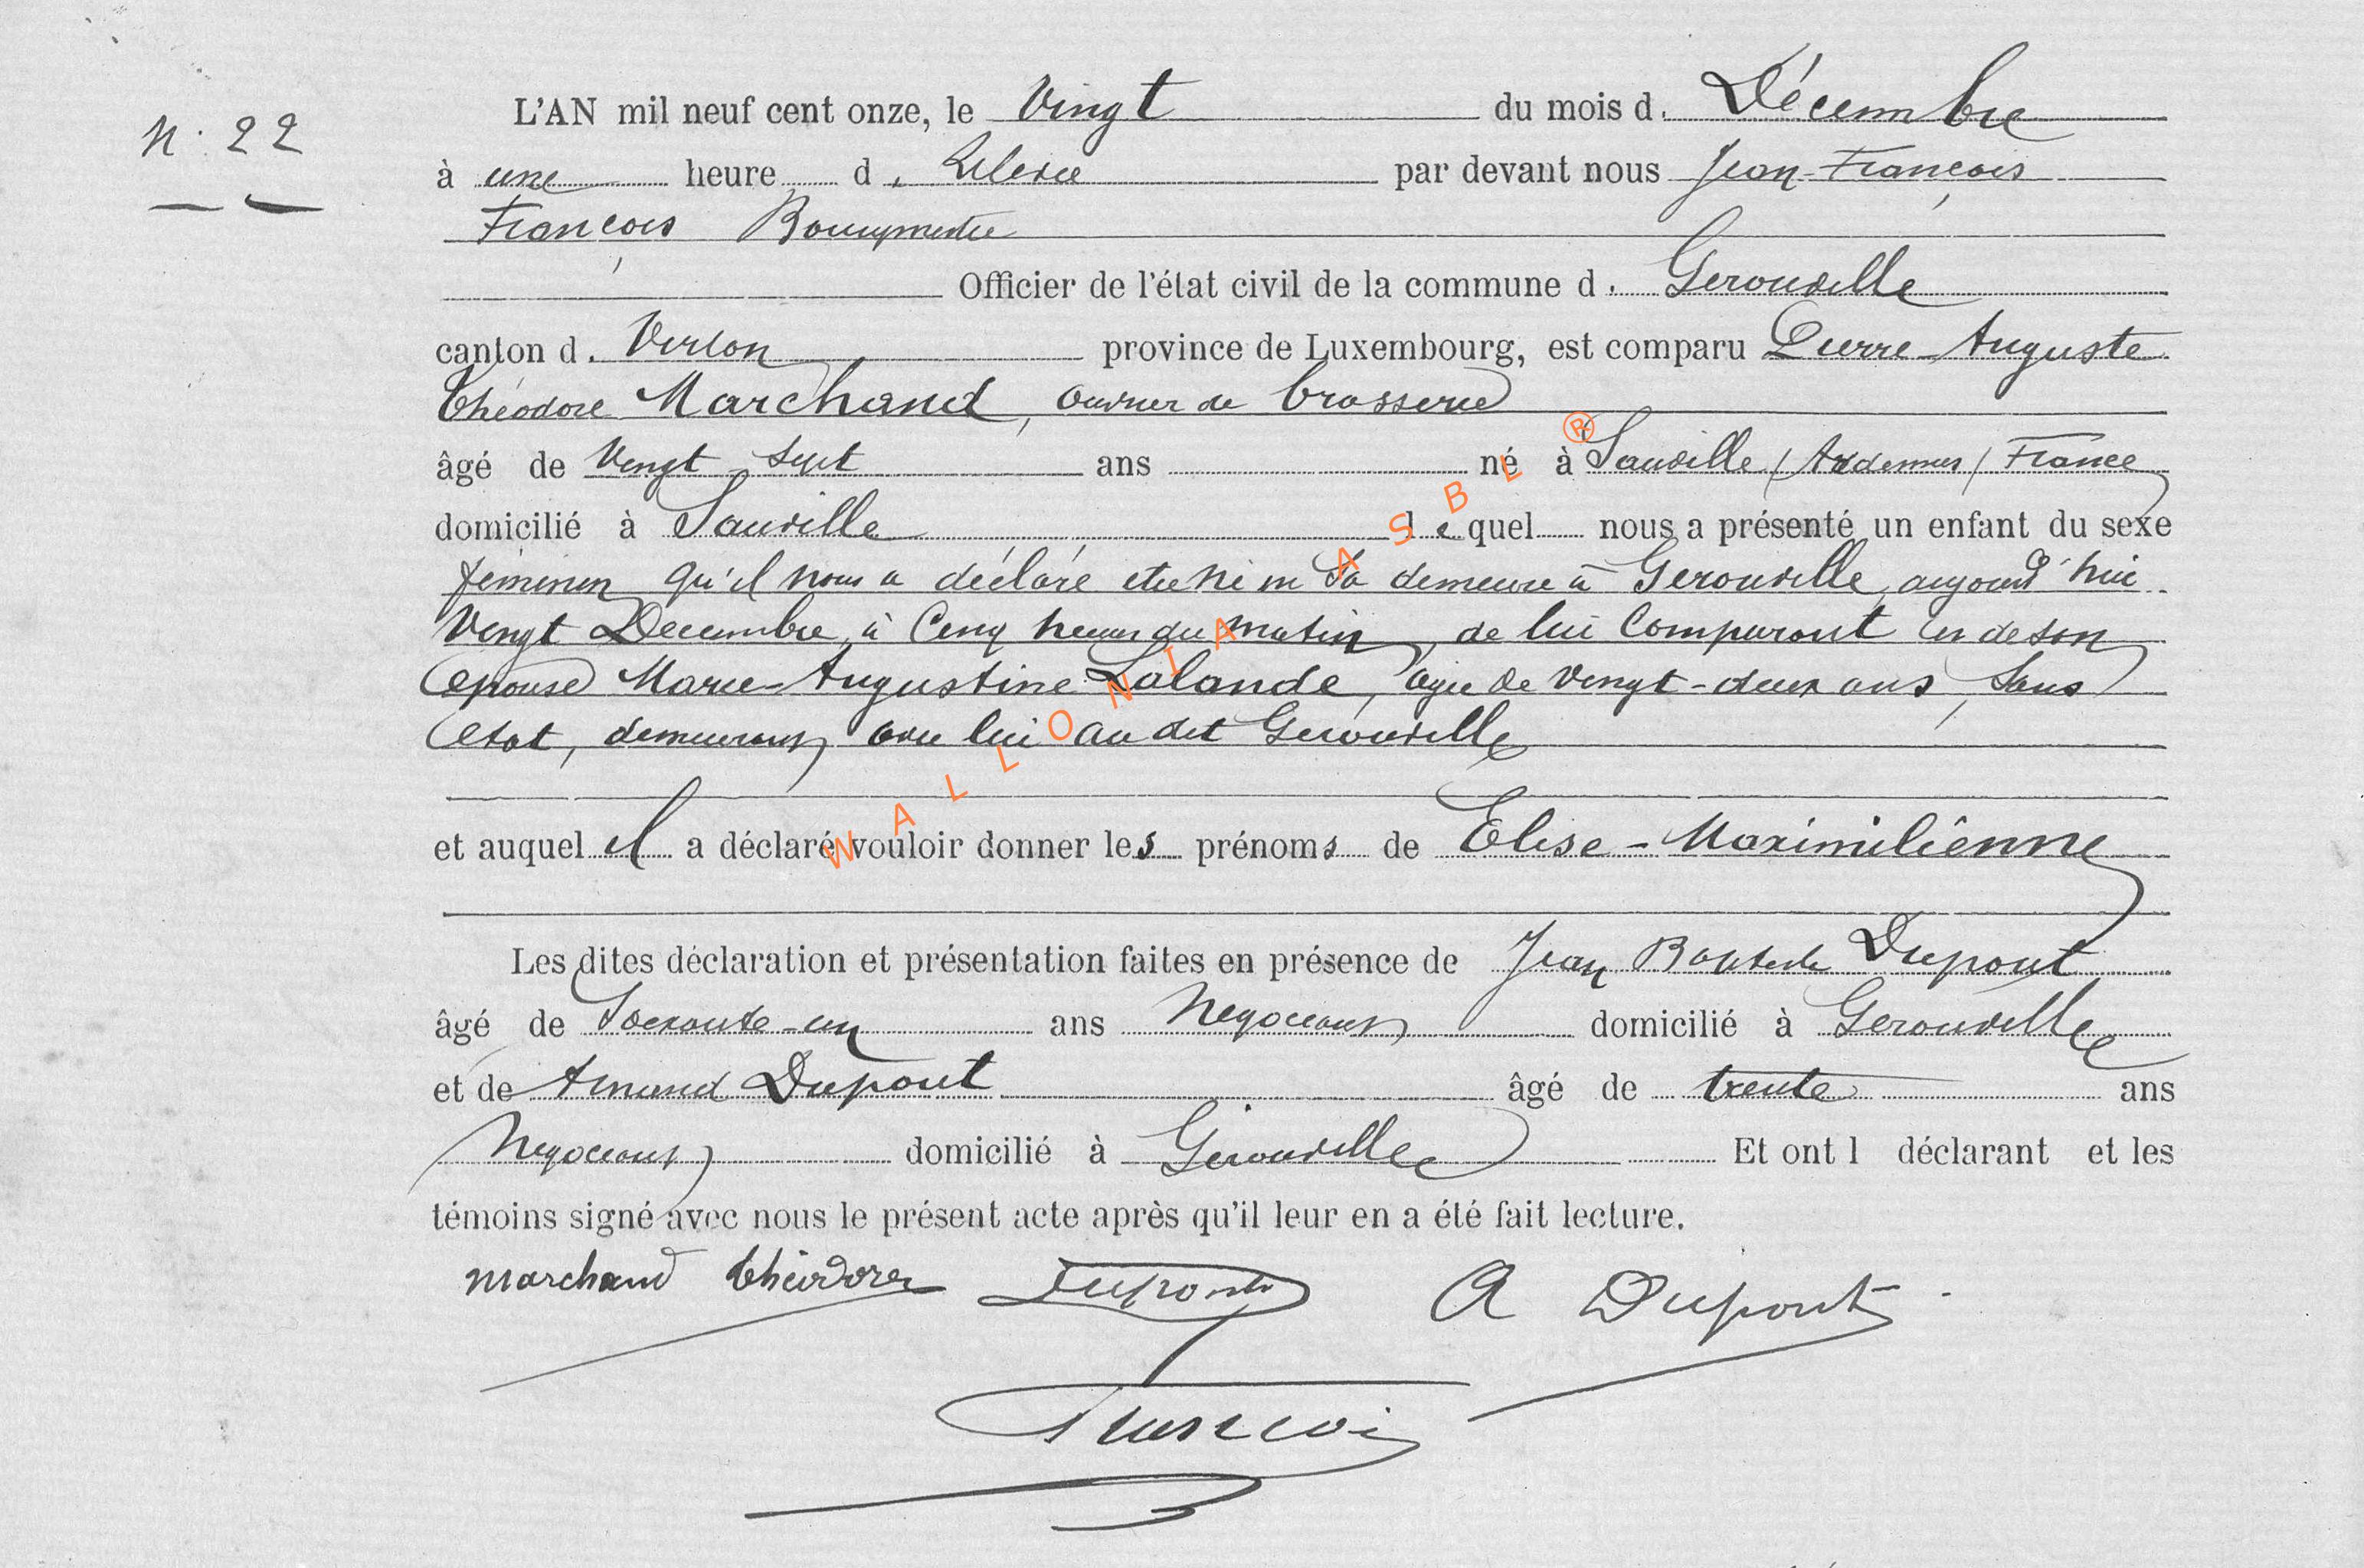 N. 22
L'AN mil neuf cent onze, le Vingt du mois d. Décembre
à une heure d. Relevée par devant nous Jean-François
François Bourgmestre
Officier de l'état civil de la commune d. Gerouville
canton d. Virton province de Luxembourg, est comparu Pierre-Auguste
Théodore Marchand, ouvrier de brasserie
âgé de Vingt-sept ans né à Sauville (Ardennes) France
domicilié à Sauville lequel nous a présenté un enfant du sexe
féminin qu'il nous a déclaré etre né en sa demeure à Gerouville, aujourd'hui
Vingt Decembre, à Cinq heures du matin, de lui Comparant et de son
epouse Marie-Augustine Lalande, agée de Vingt-deux ans, Sans
etat, demeurant avec lui au dit Gerouville
et auquel il a déclaré vouloir donner les prénoms de Elise-Maximiliênne
Les dites déclaration et présentation faites en présence de Jean Baptiste Dupont
âgé de Soixante-un ans Negociant domicilié à Gerouville
et de Armand Dupont âgé de trente ans
Negociant domicilié à Gerouville Et ont l déclarant et les
témoins signé avec nous le présent acte après qu'il leur en a été fait lecture.
Marchand théodore Dupont A Dupont
François
WALLONIA ASBL ®